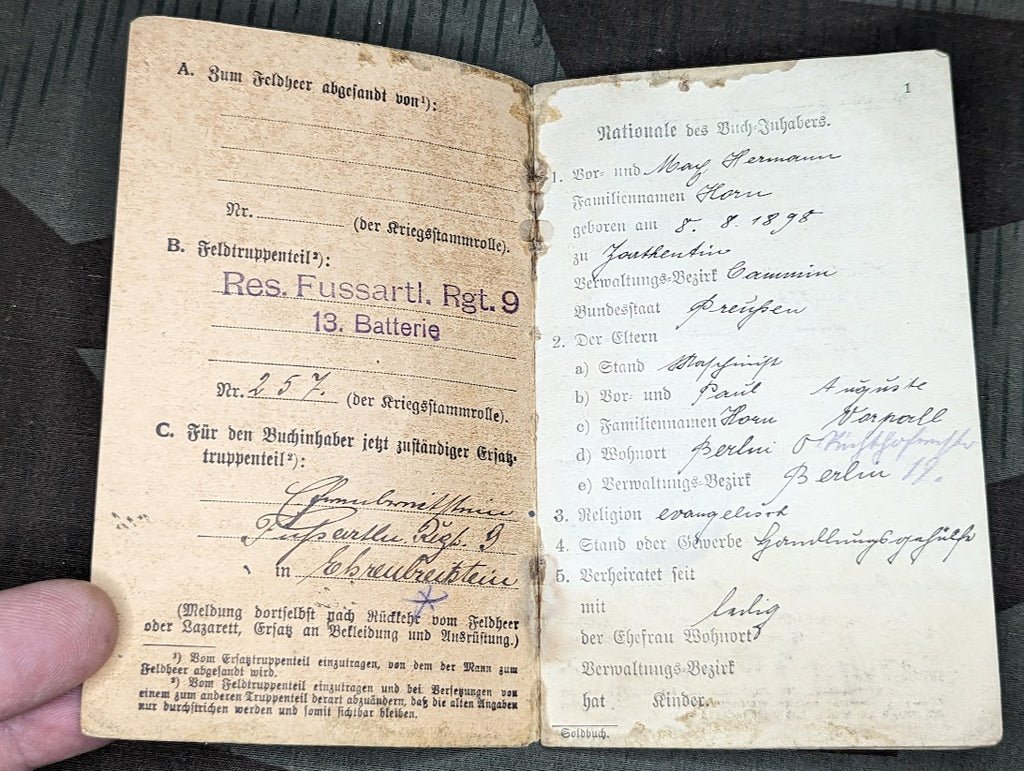 A. Zum Feldheer abgesandt von¹):
Nr. (der Kriegsstammrolle).
B. Feldtruppenteil²):
Res. Fussartl. Rgt. 9
13. Batterie
Nr. 257. (der Kriegsstammrolle).
C. Für den Buchinhaber jetzt zuständiger Ersatz-
truppenteil²):
Fußartl. Regt. 9
in Ehrenbreitstein
(Meldung dortselbst nach Rückkehr vom Feldheer
oder Lazarett, Ersatz an Bekleidung und Ausrüstung.)
¹) Vom Ersatztruppenteil einzutragen, von dem der Mann zum
Feldheer abgesandt wird.
²) Vom Feldtruppenteil einzutragen und bei Versetzungen von
einem zum anderen Truppenteil derart abzuändern, daß die alten Angaben
nur durchstrichen werden und somit sichtbar bleiben.
1
Nationale des Buch-Inhabers.
1. Vor- und Max Hermann
Familiennamen Horn
geboren am 8. 8. 1898
zu
Verwaltungs-Bezirk Cammin
Bundesstaat Preußen
2. Der Eltern
a) Stand Maschinist
b) Vor- und Paul Auguste
c) Familiennamen Horn
d) Wohnort Berlin O
e) Verwaltungs-Bezirk Berlin 19.
3. Religion evangelisch
4. Stand oder Gewerbe Handlungsgehülfe
5. Verheiratet seit
mit ledig
der Ehefrau Wohnort
Verwaltungs-Bezirk
hat Kinder.
Soldbuch.